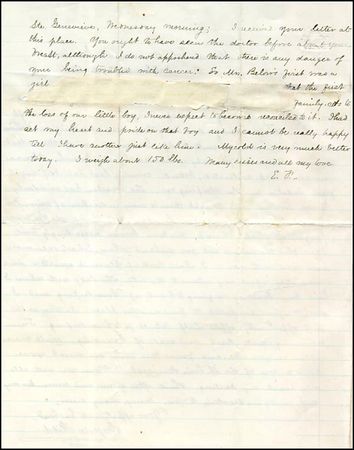 Ste. Genevieve, Wednesday morning; I received your letter at
this place. You ought to have seen the doctor before about your
breast, although I do not apprehend that there is any danger of
your being troubled with cancer. So Mrs. first was a
girl
that the first
family. As to
the loss of our little boy, I never expect to become reconciled to it. I had
set my heart and pride on that boy and I cannot be really happy
till I have another just like him. My cold is very much better
today. I weigh about 150 lbs. Many kisses and all my love
E. F.